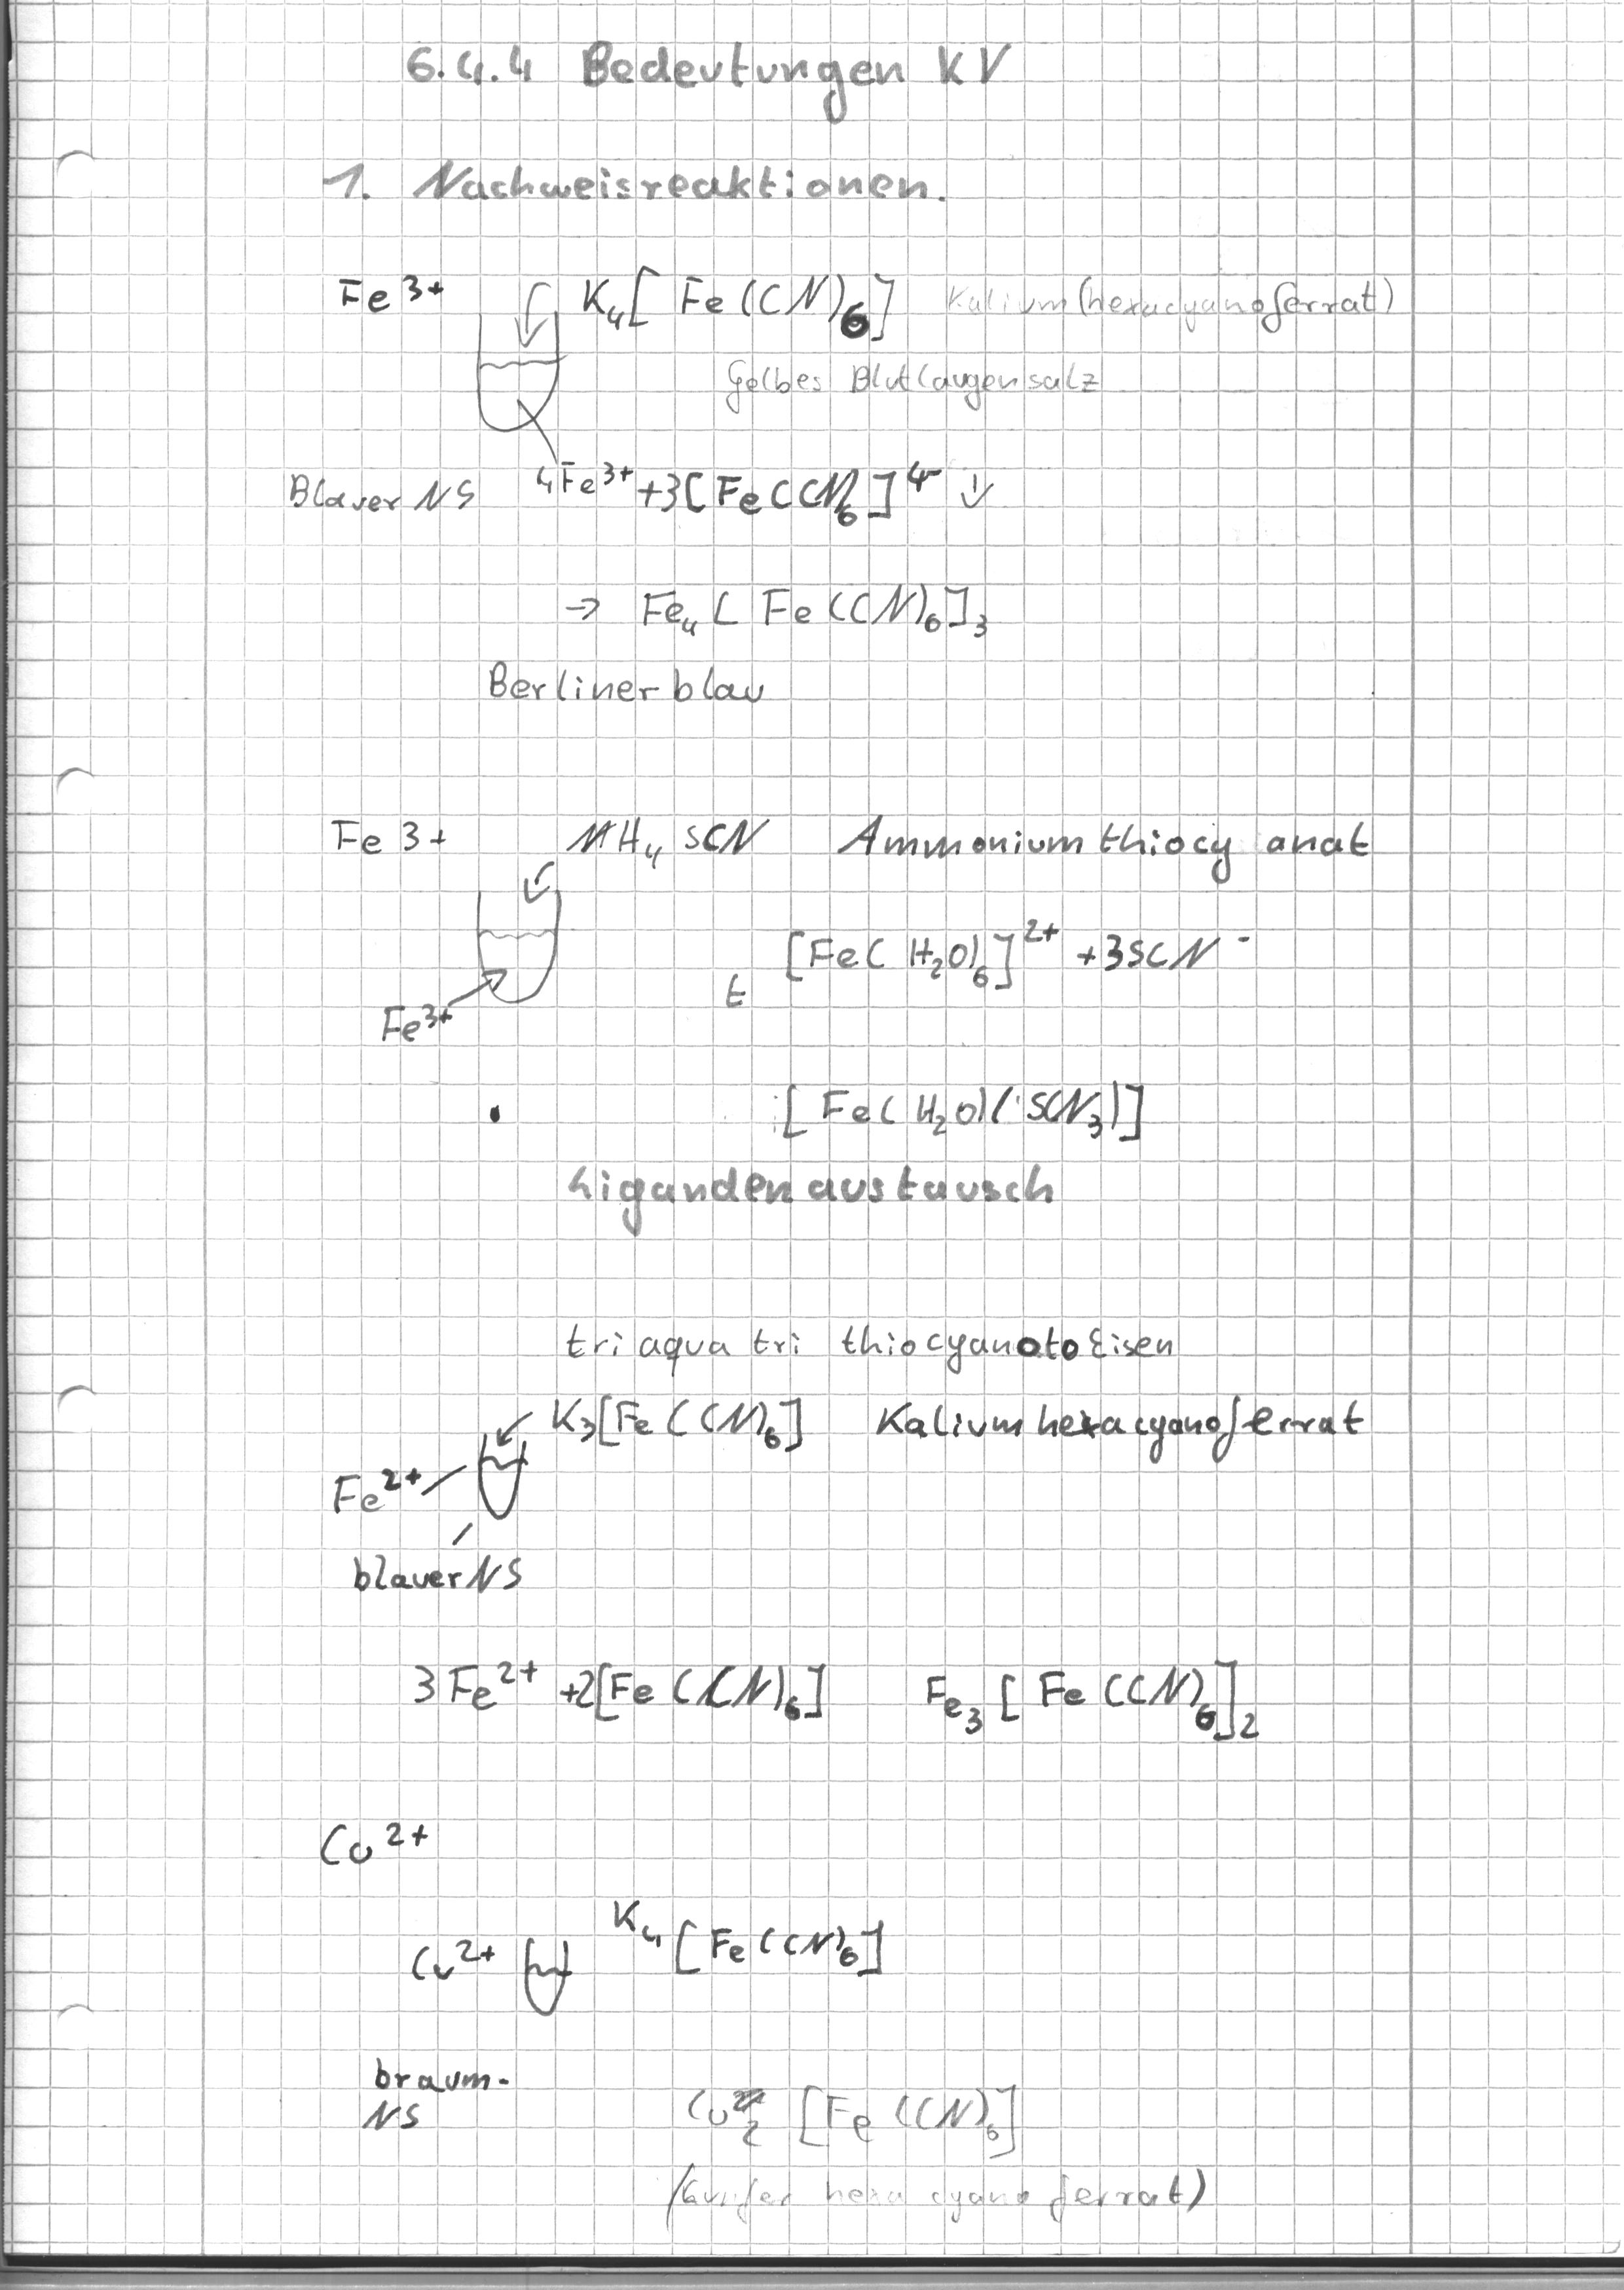 6.4.4 Bedeutungen KV
1. Nachweisreaktionen.
Fe³⁺ K₄[Fe(CN)₆] Kalium(hexacyanoferrat)
Gelbes Blutlaugensalz
Blauer NS 4Fe³⁺+3[Fe(CN)₆]⁴⁻ ↓
→ Fe₄[Fe(CN)₆]₃
Berliner blau
Fe 3+ NH₄ SCN Ammoniumthiocyanat
[Fe(H₂O)₆]²⁺ +3SCN⁻
t
Fe³⁺
[Fe(H₂O)(SCN₃)]
Ligandenaustausch
tri aqua tri thiocyanato Eisen
K₃[Fe(CN)₆] Kaliumhexacyanoferrat
Fe²⁺
blauer NS
3Fe²⁺ +2[Fe(CN)₆] Fe₃[Fe(CN)₆]₂
Cu²⁺
Cu²⁺ K₄[Fe(CN)₆]
braum-
NS Cu₂ [Fe(CN)₆]
(Kupfer hexa cyano ferrat)